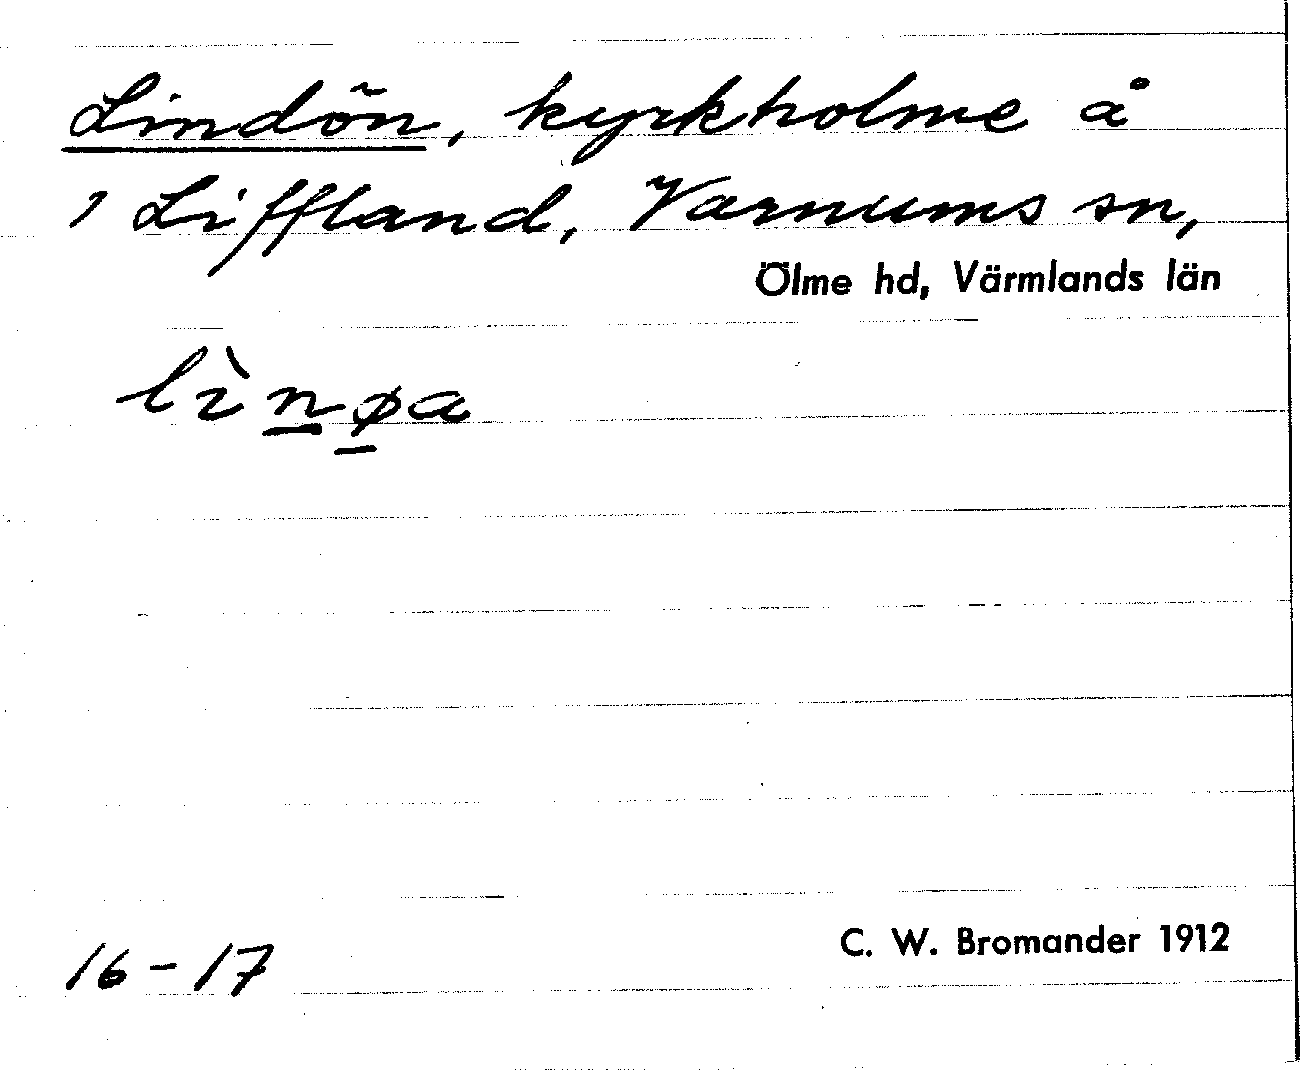 Lindön, kyrkholme å
1 Liffland, Varnums sn,
Ölme hd, Värmlands län
lìnøa
16-17
C. W. Bromander 1912